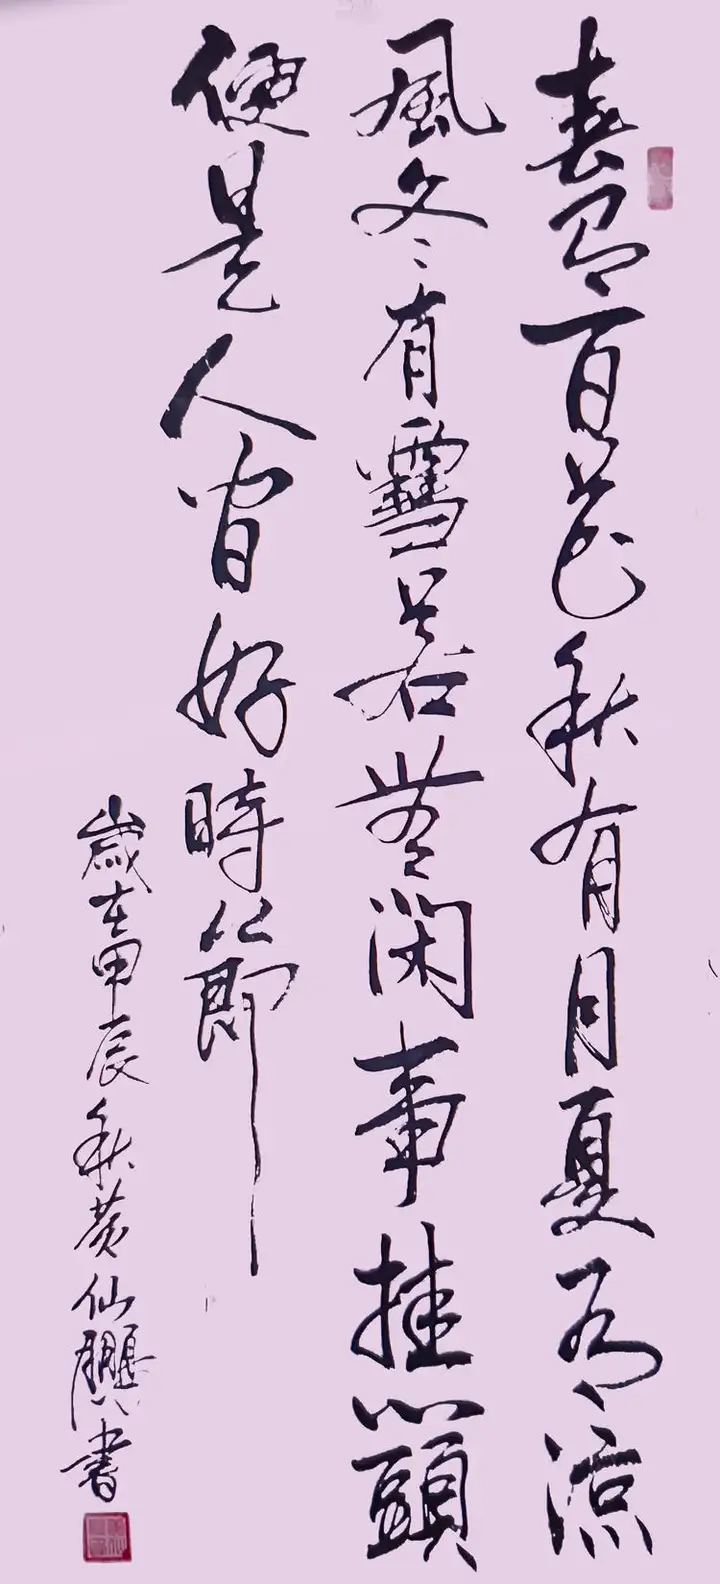 春有百花秋有月夏有涼
風冬有雪若無閑事挂心頭
便是人间好時節
歲在甲辰秋黄仙鵬書